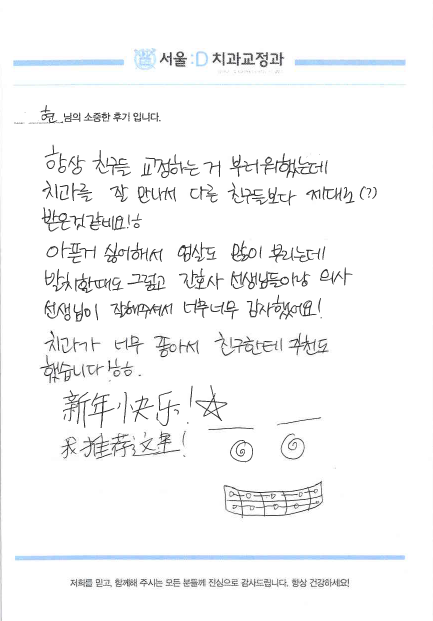 서울:D 치과교정과
현 님의 소중한 후기 입니다.
항상 친구들 교정하는 거 부러워했는데
치과를 잘 만나서 다른 친구들보다 제대로(?)
받은것같네요!ㅎ
아픈거 싫어해서 엄살도 많이 부리는데
발치할때도 그렇고 간호사 선생님들이랑 의사
선생님이 잘해주셔서 너무너무 감사했어요!
치과가 너무 좋아서 친구한테 추천도
했습니다 ㅎㅎ.
新年快乐!
我推荐这里!
저희를 믿고, 함께해 주시는 모든 분들께 진심으로 감사드립니다. 항상 건강하세요!